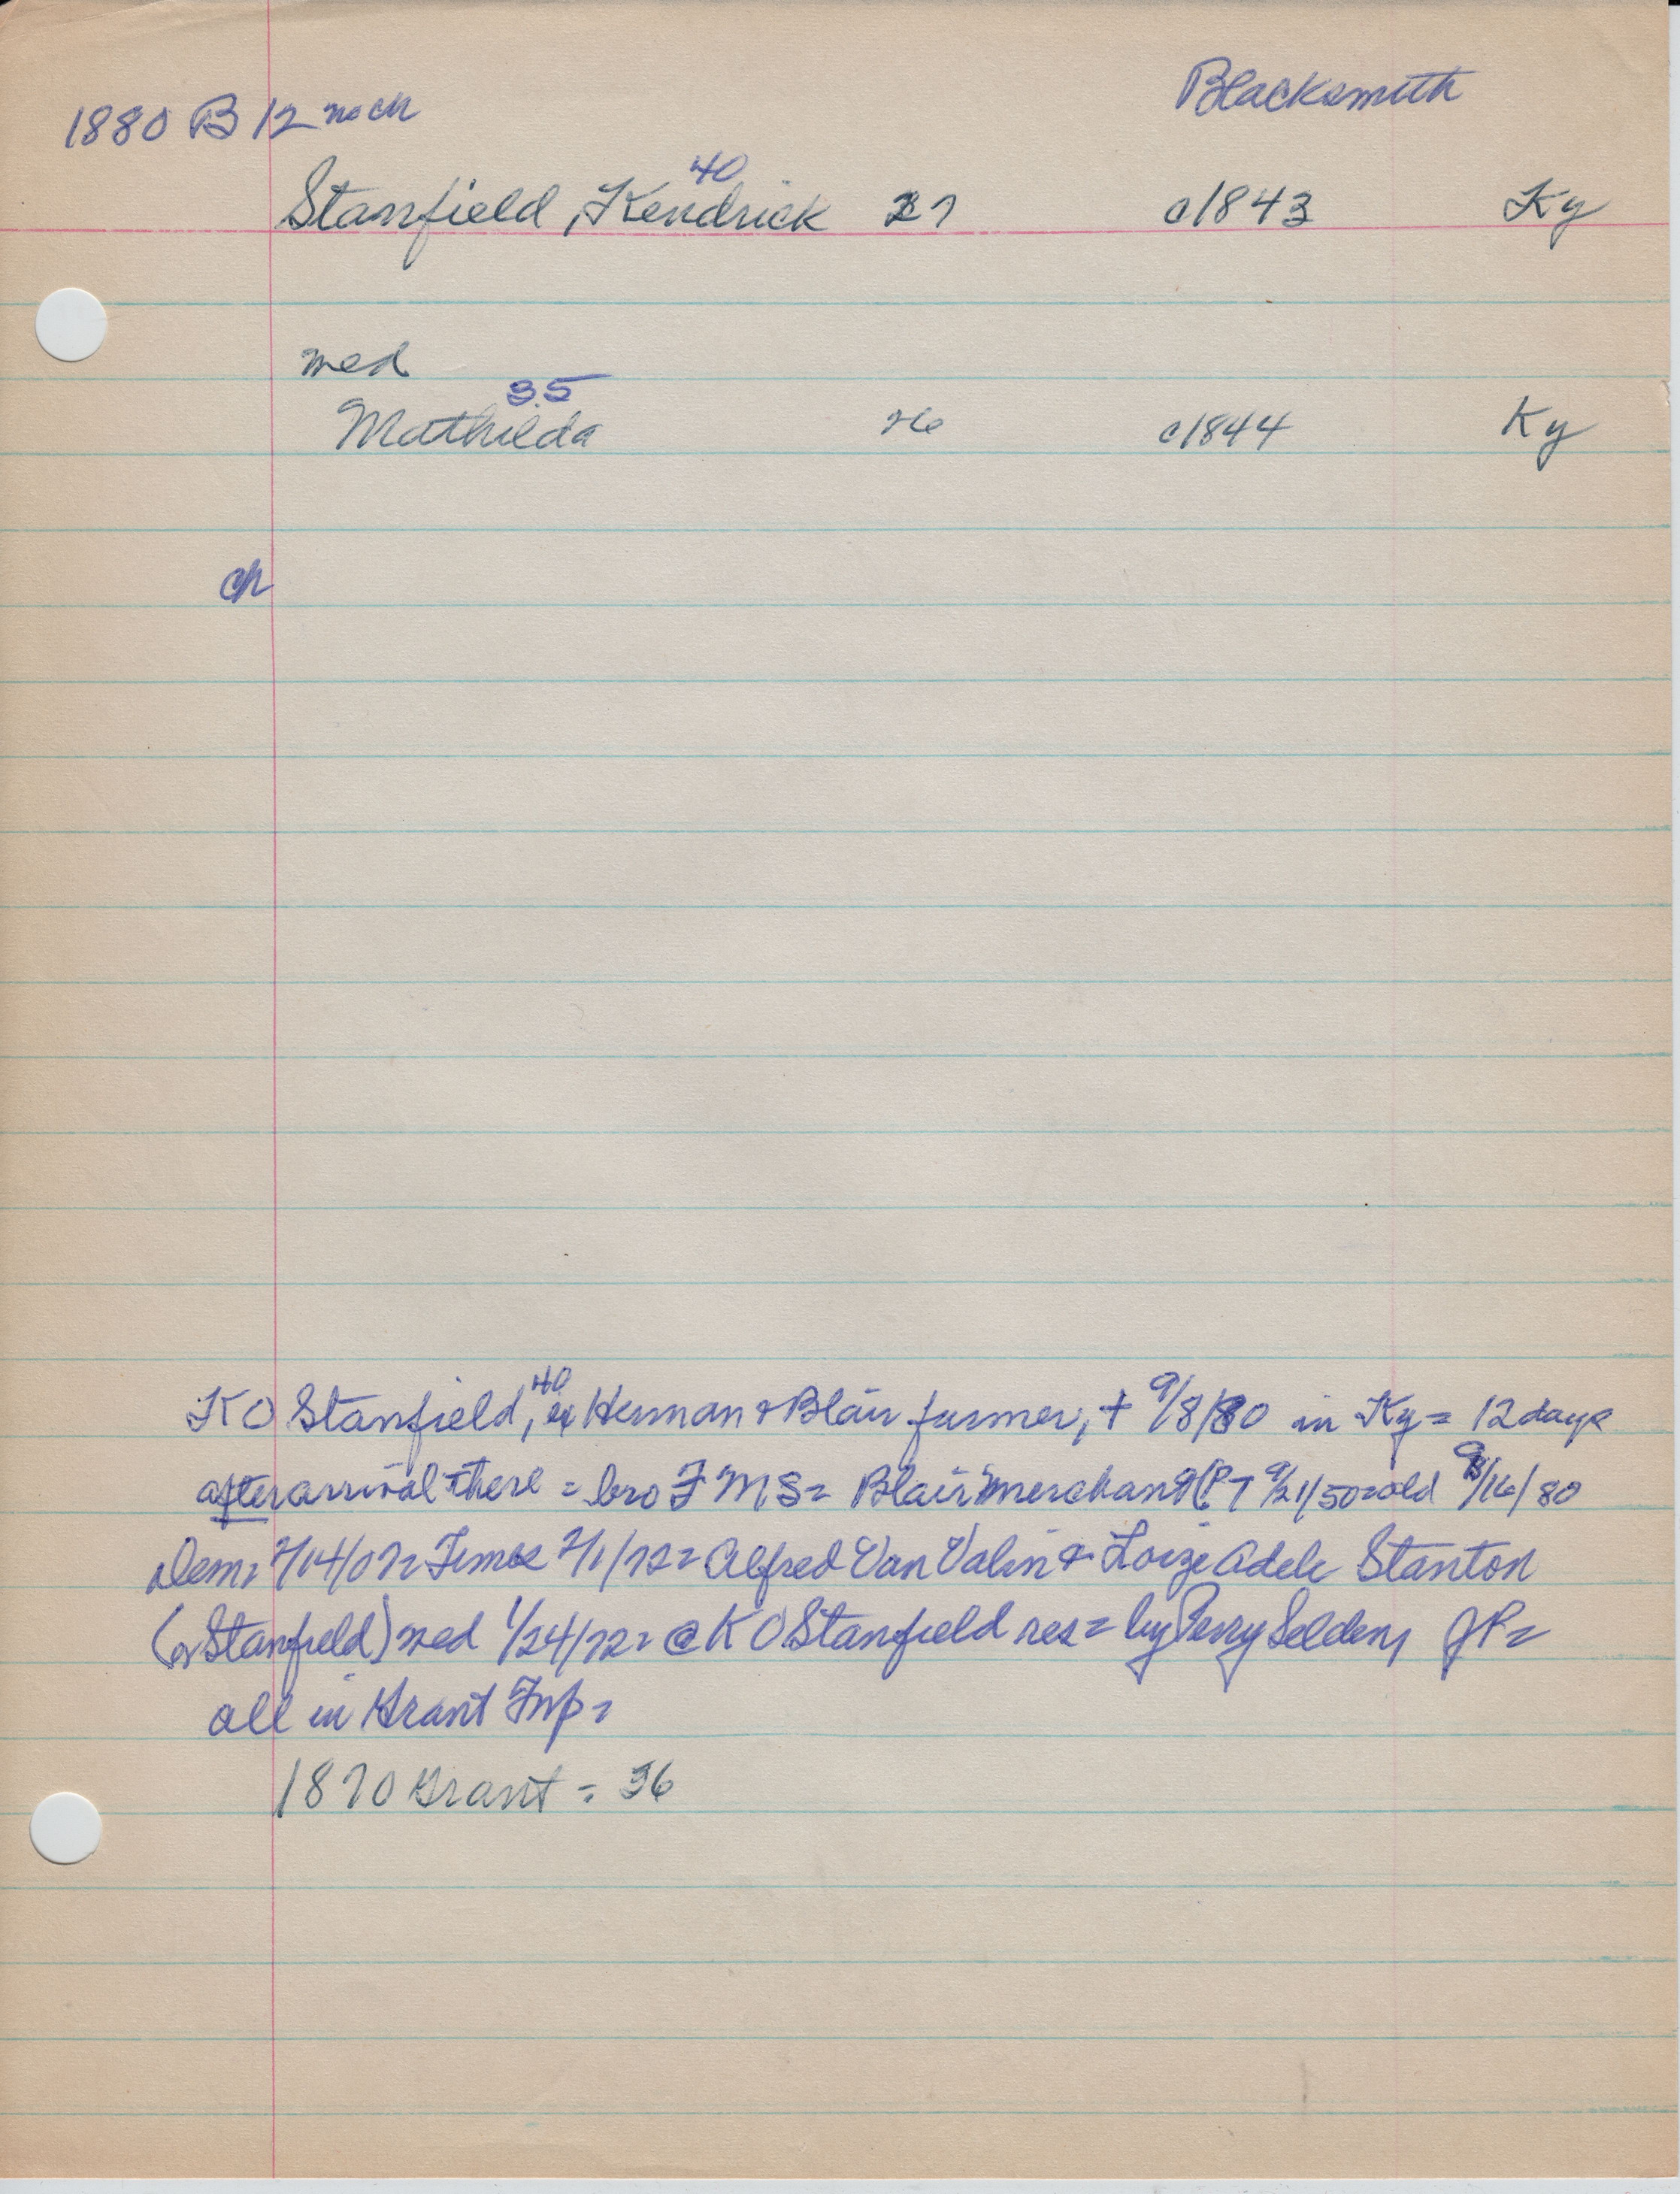 Blacksmith
1880 B 12 no ch
40
Stanfield, Kendrick 27 c1843 Ky
med
35
Mathilda 26 c1844 Ky
ch
40
KO Stanfield, ex Herman & Blair farmer, + 9/8/80 in Ky = 12 days
after arrival there = bro F M S = Blair merchant (PT 9/21/50=old 9/16/80
Dem = Times 2/1/72 = Alfred Van Valin & Adele Stanton
(or Stanfield) med 1/24/72 = @ K O Stanfield res = by Perry Selden, JP =
all in Grant Twp =
1870 Grant = 36